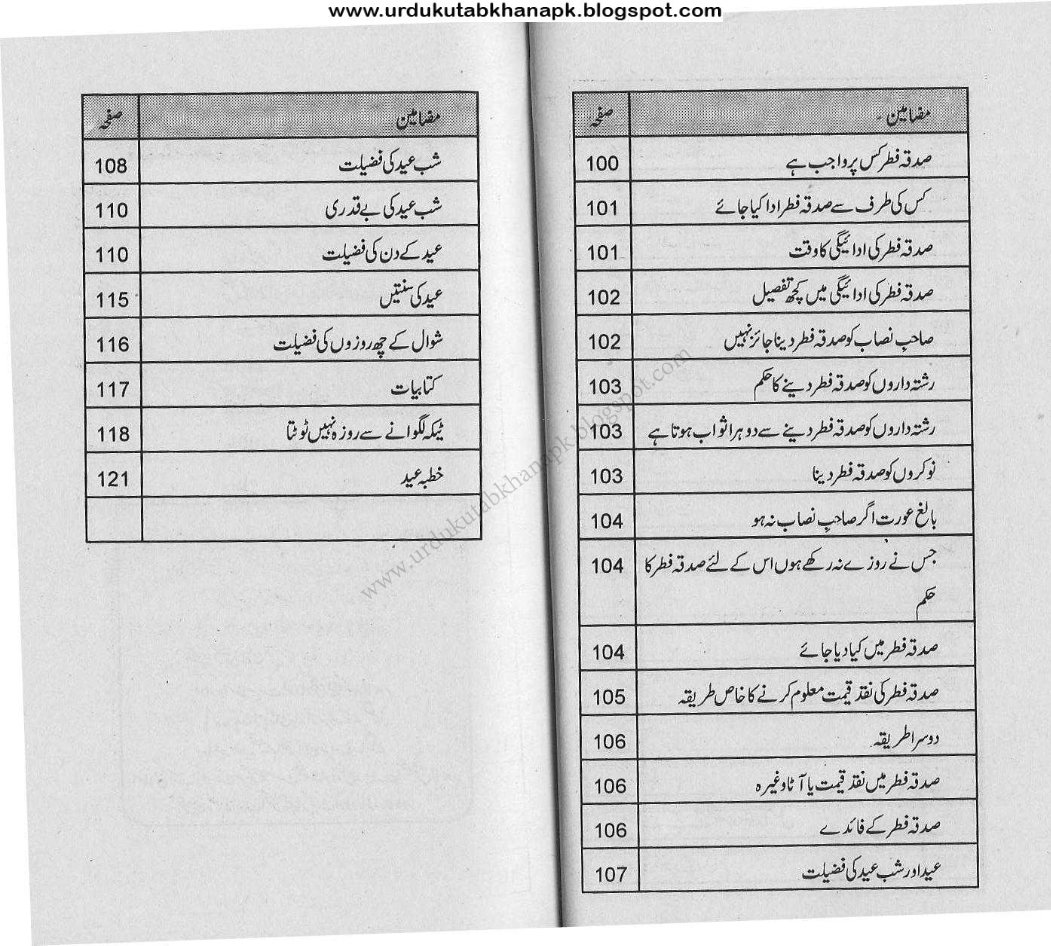 www.urdukutabkhanapk.blogspot.com
مضامین صفحہ
صدقہ فطر کس پر واجب ہے 100
کس کی طرف سے صدقہ فطر ادا کیا جائے 101
صدقہ فطر کی ادائیگی کا وقت 101
صدقہ فطر کی ادائیگی میں کچھ تفصیل 102
صاحبِ نصاب کو صدقہ فطر دینا جائز نہیں 102
رشتہ داروں کو صدقہ فطر دینے کا حکم 103
رشتہ داروں کو صدقہ فطر دینے سے دوہرا ثواب ہوتا ہے 103
نوکروں کو صدقہ فطر دینا 103
بالغ عورت اگر صاحبِ نصاب نہ ہو 104
جس نے روزے نہ رکھے ہوں اس کے لئے صدقہ فطر کا 104
حکم
صدقہ فطر میں کیا دیا جائے 104
صدقہ فطر کی نقد قیمت معلوم کرنے کا خاص طریقہ 105
دوسرا طریقہ 106
صدقہ فطر میں نقد قیمت یا آٹا وغیرہ 106
صدقہ فطر کے فائدے 106
عید اور شب عید کی فضیلت 107
مضامین صفحہ
شب عید کی فضیلت 108
شب عید کی بے قدری 110
عید کے دن کی فضیلت 110
عید کی سنتیں 115
شوال کے چھ روزوں کی فضیلت 116
کتابیات 117
ٹیکہ لگوانے سے روزہ نہیں ٹوٹتا 118
خطبہ عید 121
www.urdukutabkhanapk.blogspot.com